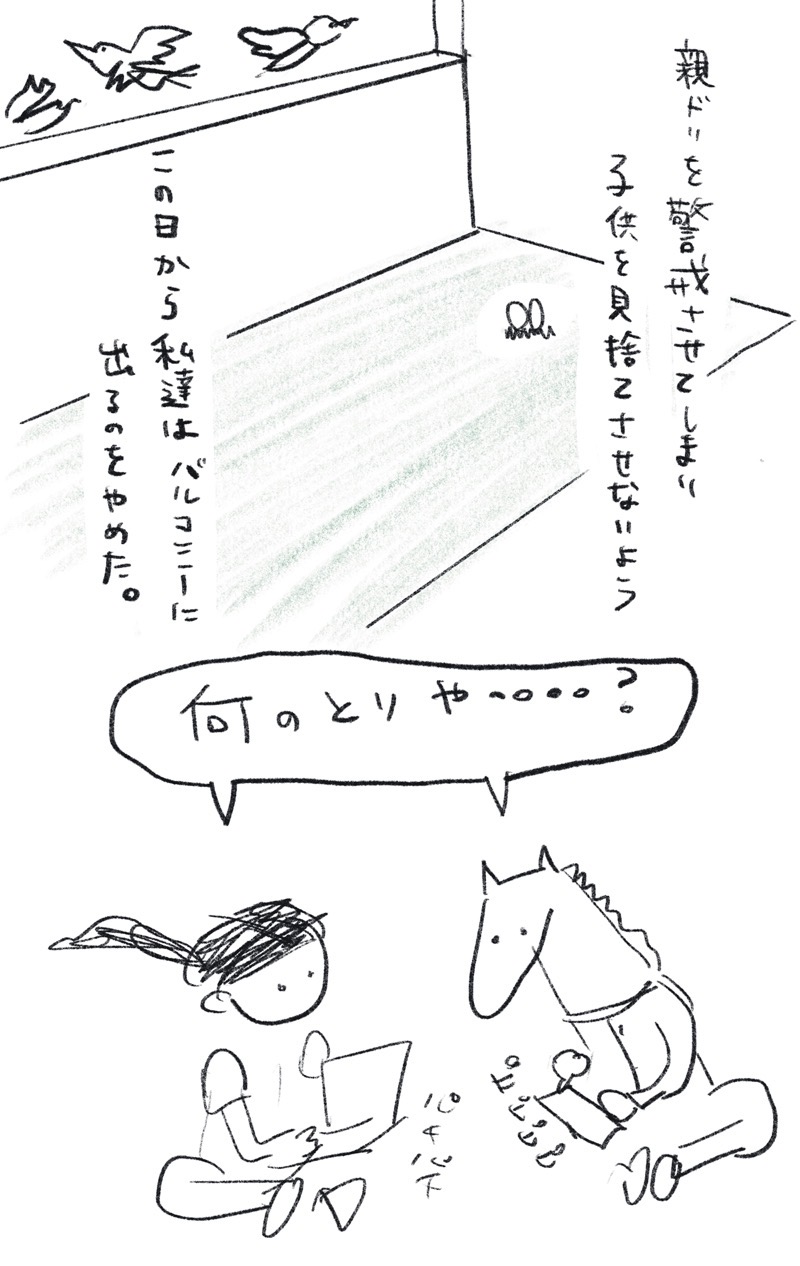 親ドリを警戒させてしまい
子供を見捨てさせないよう
この日から私達はバルコニーに
出るのをやめた。
何のとりや〜。。。?
パチパチ